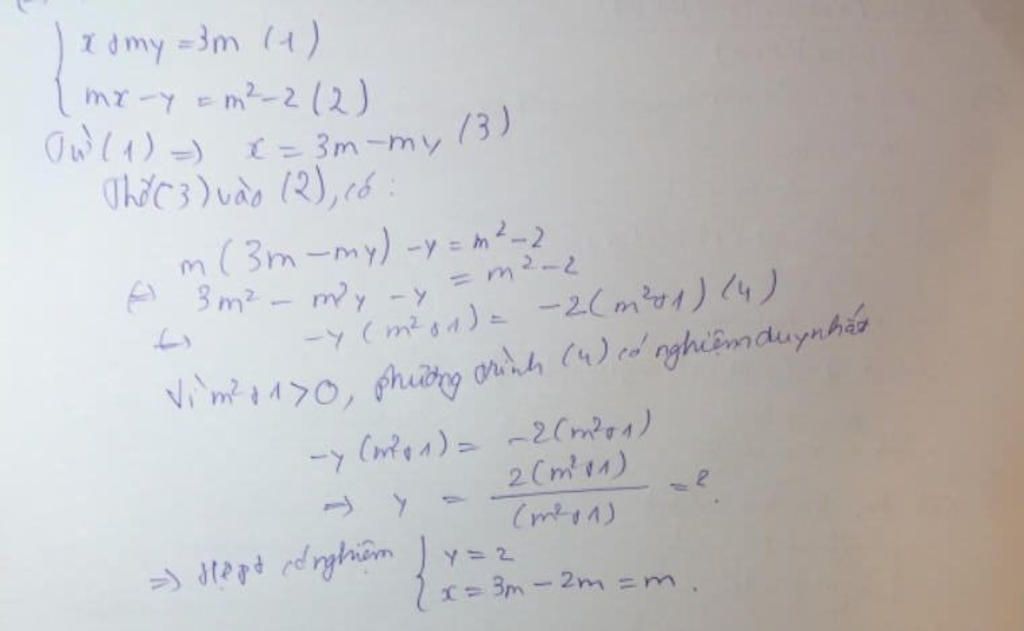 x + my = 3m (1)
mx - y = m² - 2 (2)
Từ (1) => x = 3m - my (3)
Thế (3) vào (2), có :
m (3m - my) - y = m² - 2
<=> 3m² - m²y - y = m² - 2
<=> -y (m² + 1) = -2(m² + 1) (4)
Vì m² + 1 > 0, phương trình (4) có nghiệm duy nhất
-y (m² + 1) = -2(m² + 1)
=> y = 2(m² + 1) / (m² + 1) = 2.
=> Hệ pt có nghiệm { y = 2
x = 3m - 2m = m .